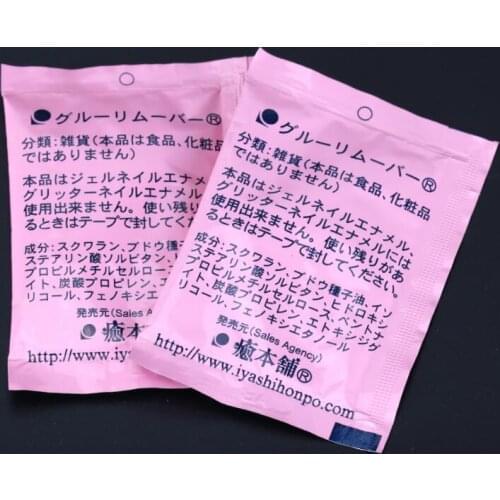 グルーリムーバー®
分類:雑貨(本品は食品、化粧品
ではありません)
本品はジェルネイルエナメル
グリッターネイルエナメル
使用出来ません。使い残り
るときはテープで封して
成分:スクワラン、ブドウ種
ステアリン酸ソルビタン、ヒ
ロピルメチルセルロー
イト、炭酸プロピレン、エ
リコール、フェノキシエ
発売元(Sales A
癒本
http://www.iya
グルーリムーバー®
分類:雑貨(本品は食品、化粧品
ではありません)
本品はジェルネイルエナメル、
グリッターネイルエナメルには
使用出来ません。使い残りがあ
るときはテープで封してください。
成分:スクワラン、ブドウ種子油、イソ
ステアリン酸ソルビタン、ヒドロキシ
プロピルメチルセルロース、ベントナ
イト、炭酸プロピレン、エトキシジグ
リコール、フェノキシエタノール
発売元(Sales Agency)
癒本舗®
http://www.iyashihonpo.com